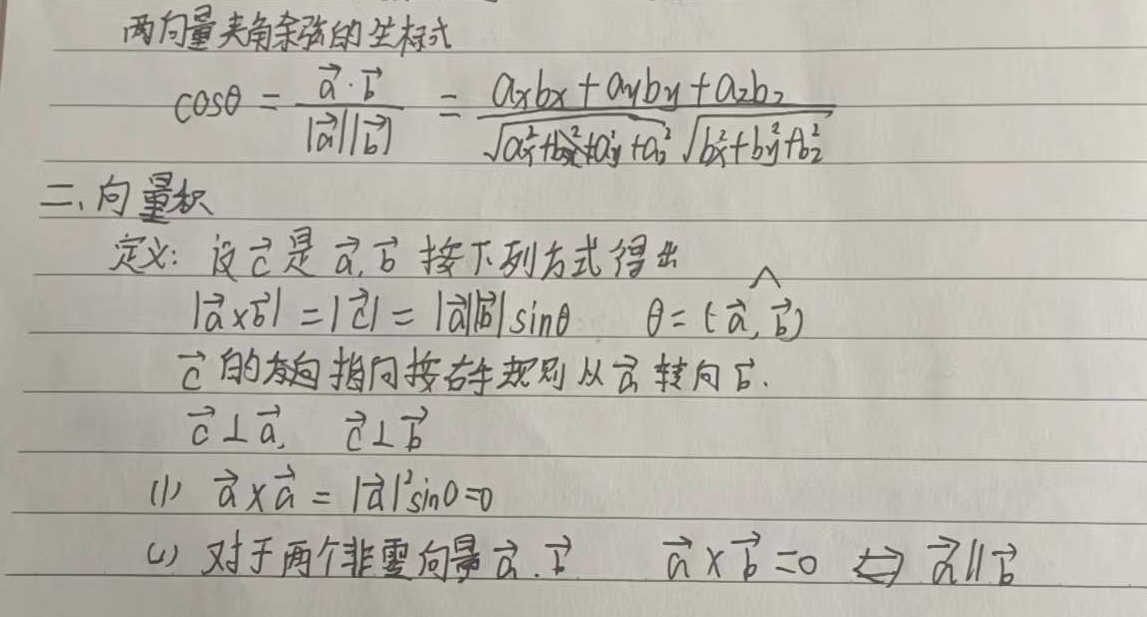 两向量夹角余弦的坐标式
cosθ = \frac{\vec{a}·\vec{b}}{|\vec{a}||\vec{b}|} = \frac{a_xb_x + a_yb_y + a_zb_z}{\sqrt{a_x^2 + a_y^2 + a_z^2} \sqrt{b_x^2 + b_y^2 + b_z^2}}
二、向量积
定义: 设 \vec{c} 是 \vec{a}, \vec{b} 按下列方式得出
|\vec{a}×\vec{b}| = |\vec{c}| = |\vec{a}||\vec{b}| sinθ θ = (\widehat{\vec{a}, \vec{b}})
\vec{c} 的方向指向按右手规则从 \vec{a} 转向 \vec{b}.
\vec{c}⊥\vec{a}, \vec{c}⊥\vec{b}
(1) \vec{a}×\vec{a} = |\vec{a}|^2 sin0 = 0
(2) 对于两个非零向量 \vec{a}、\vec{b} \vec{a}×\vec{b} = 0 ⇔ \vec{a}∥\vec{b}